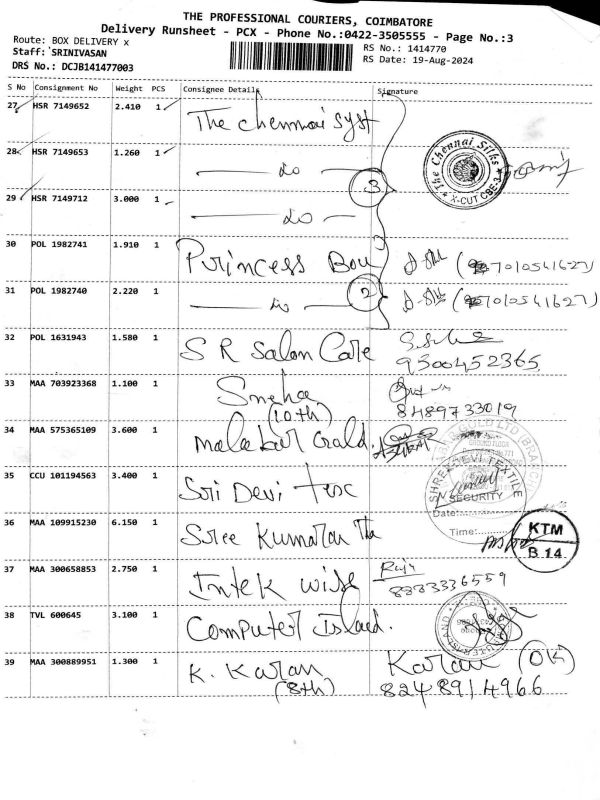 THE PROFESSIONAL COURIERS, COIMBATORE
Delivery Runsheet - PCX - Phone No.:0422-3505555 - Page No.:3
Route: BOX DELIVERY x
RS No.: 1414770
Staff: SRINIVASAN
RS Date: 19-Aug-2024
DRS No.: DCJB141477003
S No Consignment No Weight PCS Consignee Details Signature
27 HSR 7149652 2.410 1 The Chennai Syst
28 HSR 7149653 1.260 1 — do —
The Chennai Silks
X-CUT CBE-3
3
29 HSR 7149712 3.000 1 — do —
30 POL 1982741 1.910 1 Princess Bou (7010541627)
31 POL 1982740 2.220 1 — do — 2 (7010541627)
32 POL 1631943 1.580 1 S R Salon Care
9300452365
33 MAA 703923368 1.100 1 Sneha
(10th) 8489733019
34 MAA 575365109 3.600 1 Malabar Gold.
35 CCU 101194563 3.400 1 Sri Devi Tesc
SHREE DEVI TEXTILE
SECURITY
Date:
Time:
36 MAA 109915230 6.150 1 Sree Kumaran Tha
KTM
B.14.
37 MAA 300658853 2.750 1 Intek wise Raja
8883336559
38 TVL 600645 3.100 1 Computer Island.
39 MAA 300889951 1.300 1 K. Karan Karan (OK)
(8th) 8248914966